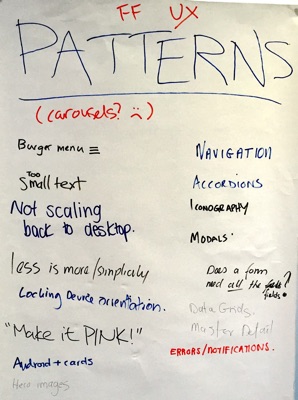 FF UX
PATTERNS
(carousels? ☹)
Burger menu ≡
Too
Small text
Not scaling
back to desktop.
less is more/simplicity
Locking Device orientation.
"Make it PINK!"
Android + cards
Hero images
NAVIGATION
ACCORDIONS
ICONOGRAPHY
MODALS
Does a form
need all the
fields?
Data Grids
Master Detail
ERRORS/NOTIFICATIONS.